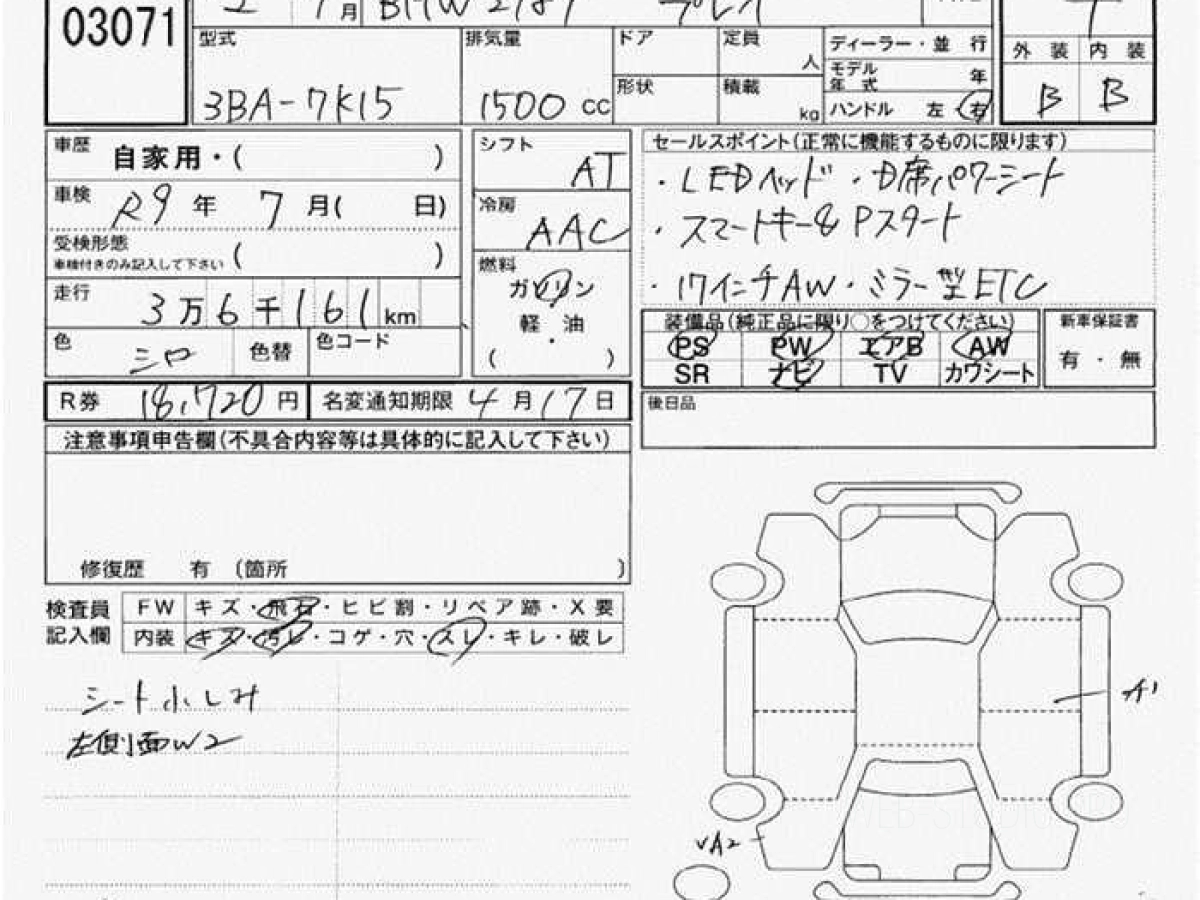 03071
月 BMW 218i
型式 排気量 ドア 定員 人 ディーラー・並 行
モデル年式 年
外 装 内 装
3BA-7K15 1500 cc 形状 積載 kg ハンドル 左 右 B B
車歴 自家用・( )
シフト AT
セールスポイント(正常に機能するものに限ります)
・LEDヘッド ・D席パワーシート
車検 R9年 7月( 日)
冷房 AAC
・スマートキー& Pスタート
受検形態
車検付きのみ記入して下さい ( )
燃料 ガソリン
・17インチAW・ミラー型ETC
走行 3万6千161km
軽・油
( )
装備品(純正品に限り○をつけてください) 新車保証書
PS PW エアB AW
有・無
色 シロ 色替 色コード
SR ナビ TV カワシート
R券 18,720円 名変通知期限 4月17日
後日品
注意事項申告欄(不具合内容等は具体的に記入して下さい)
修復歴 有 〔箇所 〕
検査員 FW キズ・飛石・ヒビ割・リペア跡・X要
記入欄 内装 キズ・汚レ・コゲ・穴・スレ・キレ・破レ
シート小シミ
左側面W2
A1
VA2